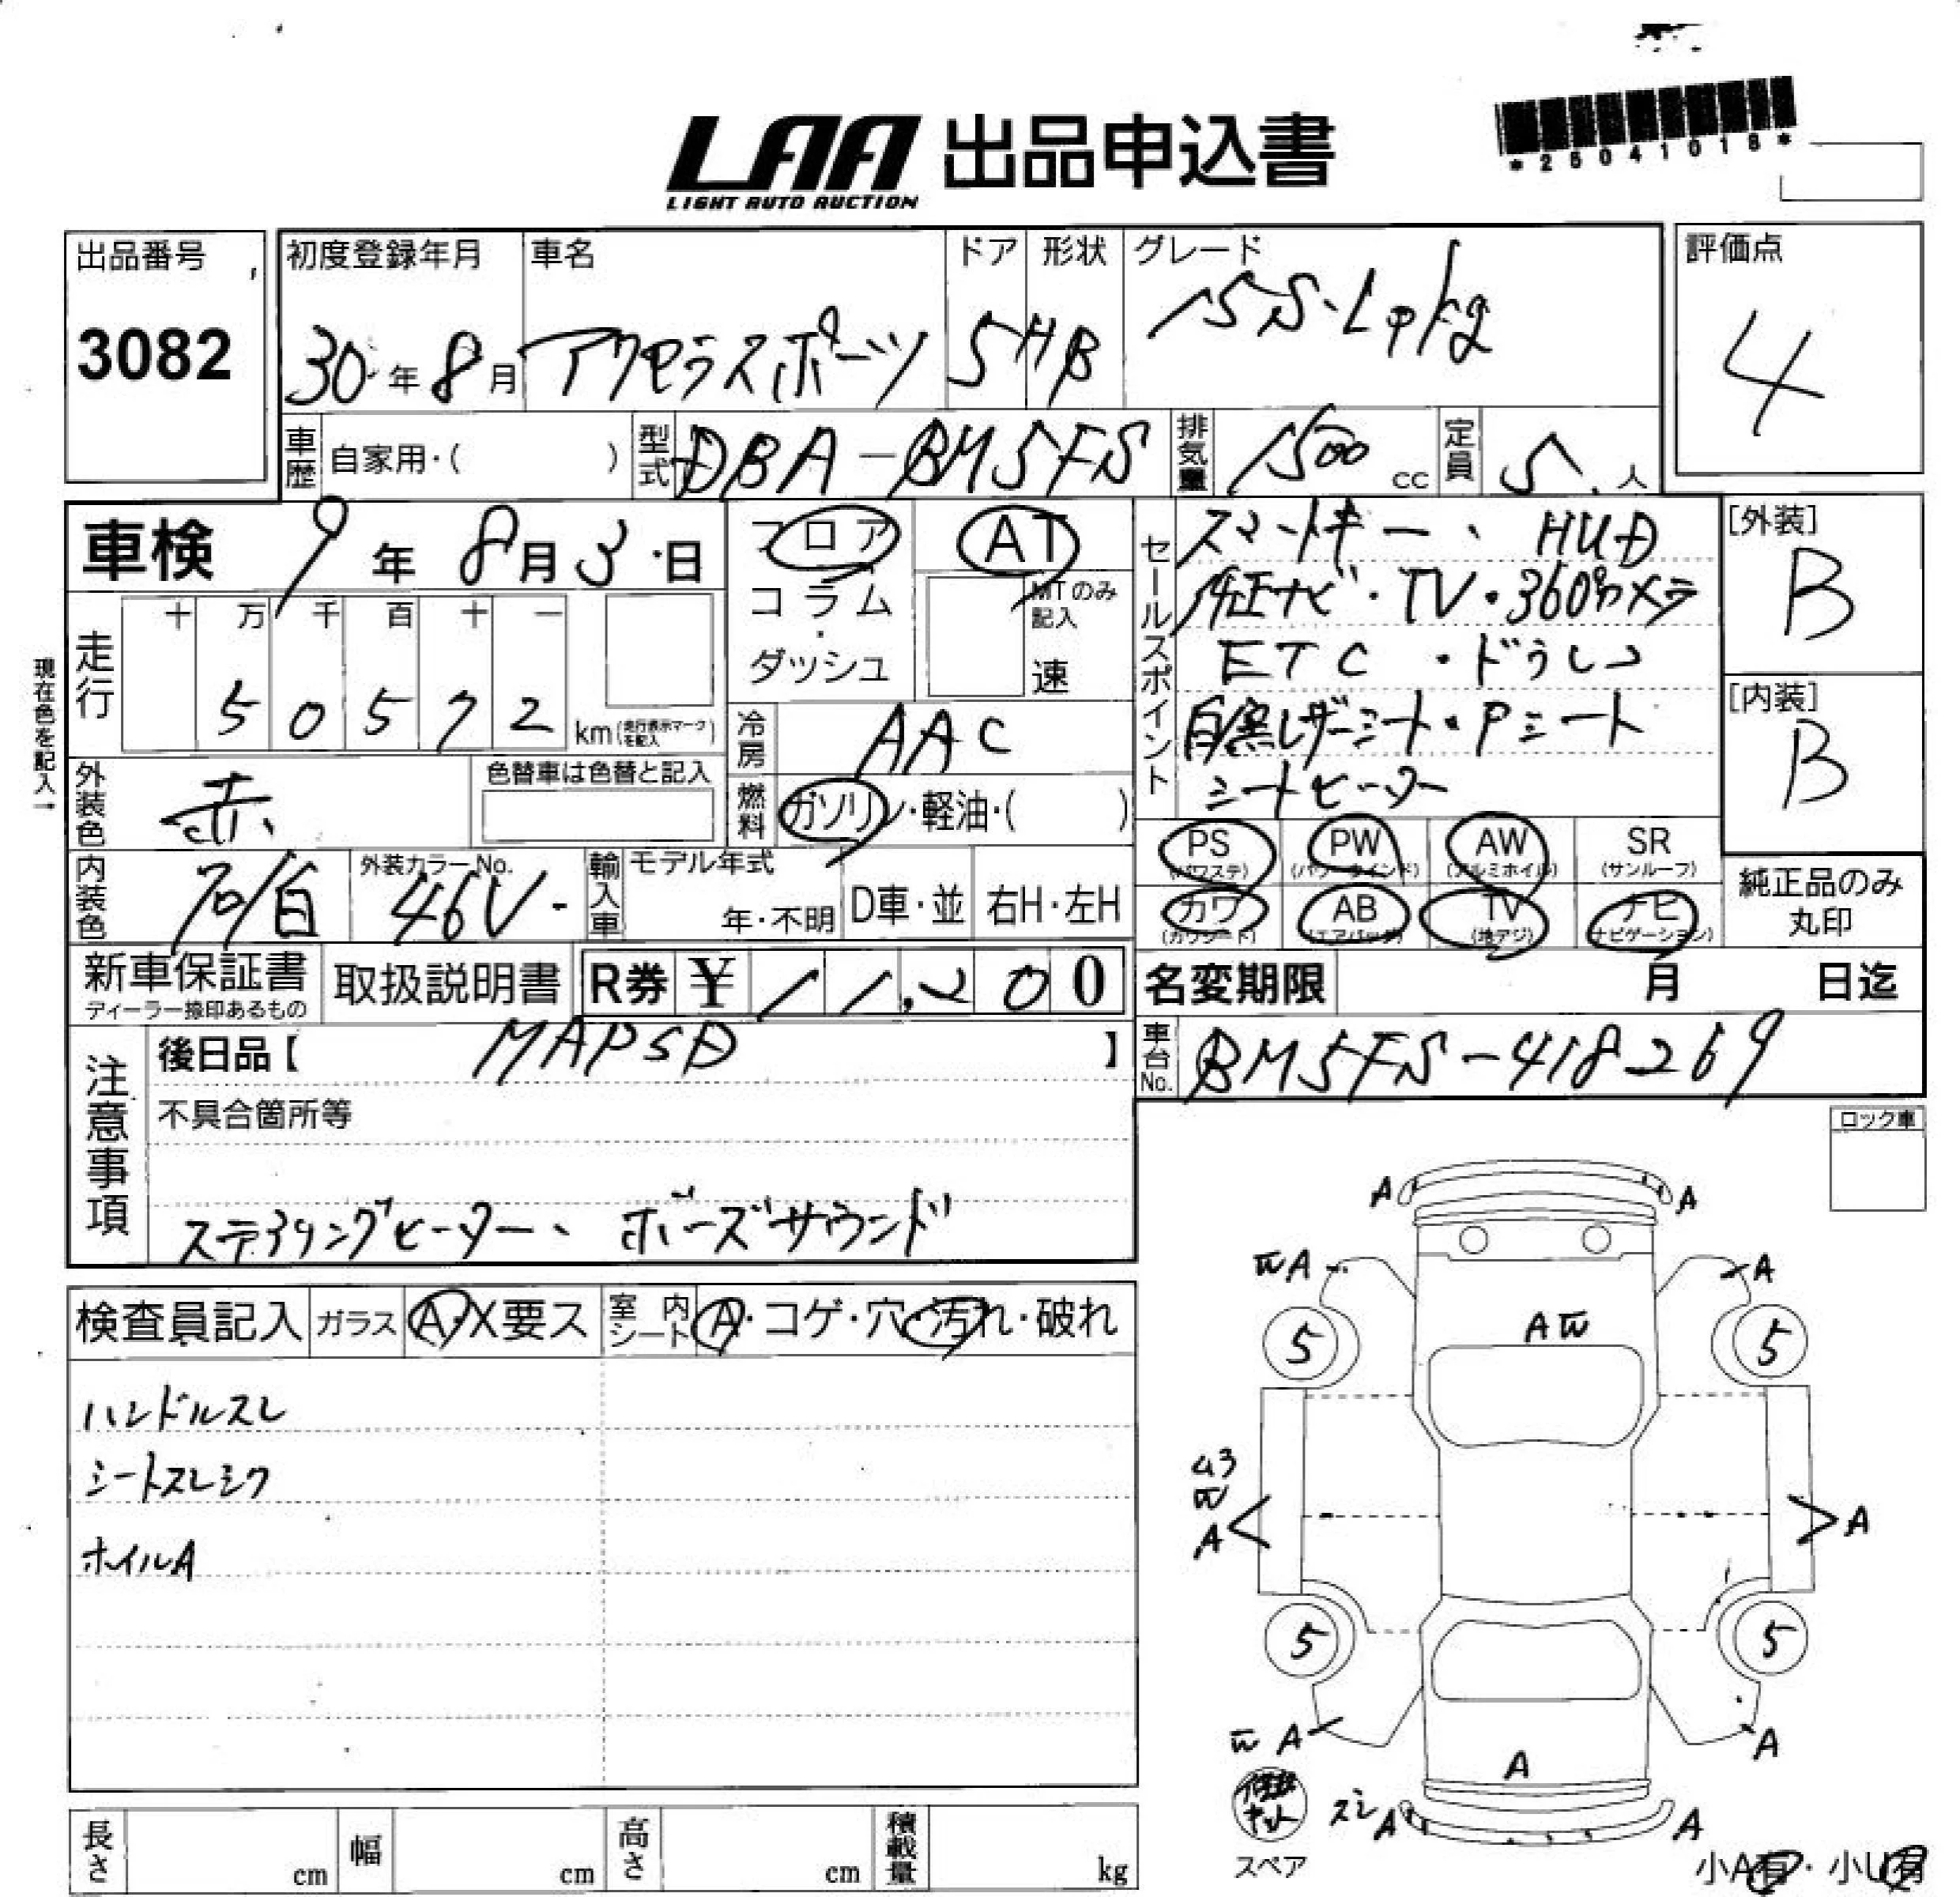 *26041018*
LAA 出品申込書
LIGHT AUTO AUCTION
出品番号
3082
初度登録年月
30年8月
車名
アクセラスポーツ
ドア
5
形状
HB
グレード
15S・Lpkg
評価点
4
車歴 自家用・( )
型式 DBA-BM5FS
排気量 1500cc
定員 5人
車検 9年8月3日
フロア
コラム
・
ダッシュ
AT
MTのみ記入
速
セールスポイント
スマートキー、HUD
純正ナビ・TV・360°カメラ
ETC・ドラレコ
白/黒レザーシート・Pシート
シートヒーター
[外装]
B
[内装]
B
現在色を記入→
走行
十 万 千 百 十 一
5 0 5 7 2 km(走行表示マークを記入)
冷房 AAC
外装色 赤
色替車は色替と記入
燃料 ガソリン・軽油・( )
内装色
外装カラーNo.
46V-
輸入車
モデル年式
年・不明
D車・並
右H・左H
PS (パワステ)
PW (パワーウインド)
AW (アルミホイル)
SR (サンルーフ)
カワ (カワシート)
AB (エアバッグ)
TV (地デジ)
ナビ (ナビゲーション)
純正品のみ
丸印
新車保証書
ディーラー捺印あるもの
取扱説明書
R券 ¥11,200
名変期限 月 日迄
車台No. BM5FS-418269
注意事項
後日品【 MAPSD 】
不具合箇所等
ステアリングヒーター、ボーズサウンド
ロック車
検査員記入
ガラス
A・X要ス
室内シート
A・コゲ・穴・汚れ・破れ
ハンドルスレ
シートスレシワ
ホイルA
A
A
A
A
A
5
5
A
A
5
5
A
A
A
A
A
スペア
小A有・小U有
長さ cm
幅 cm
高さ cm
積載量 kg